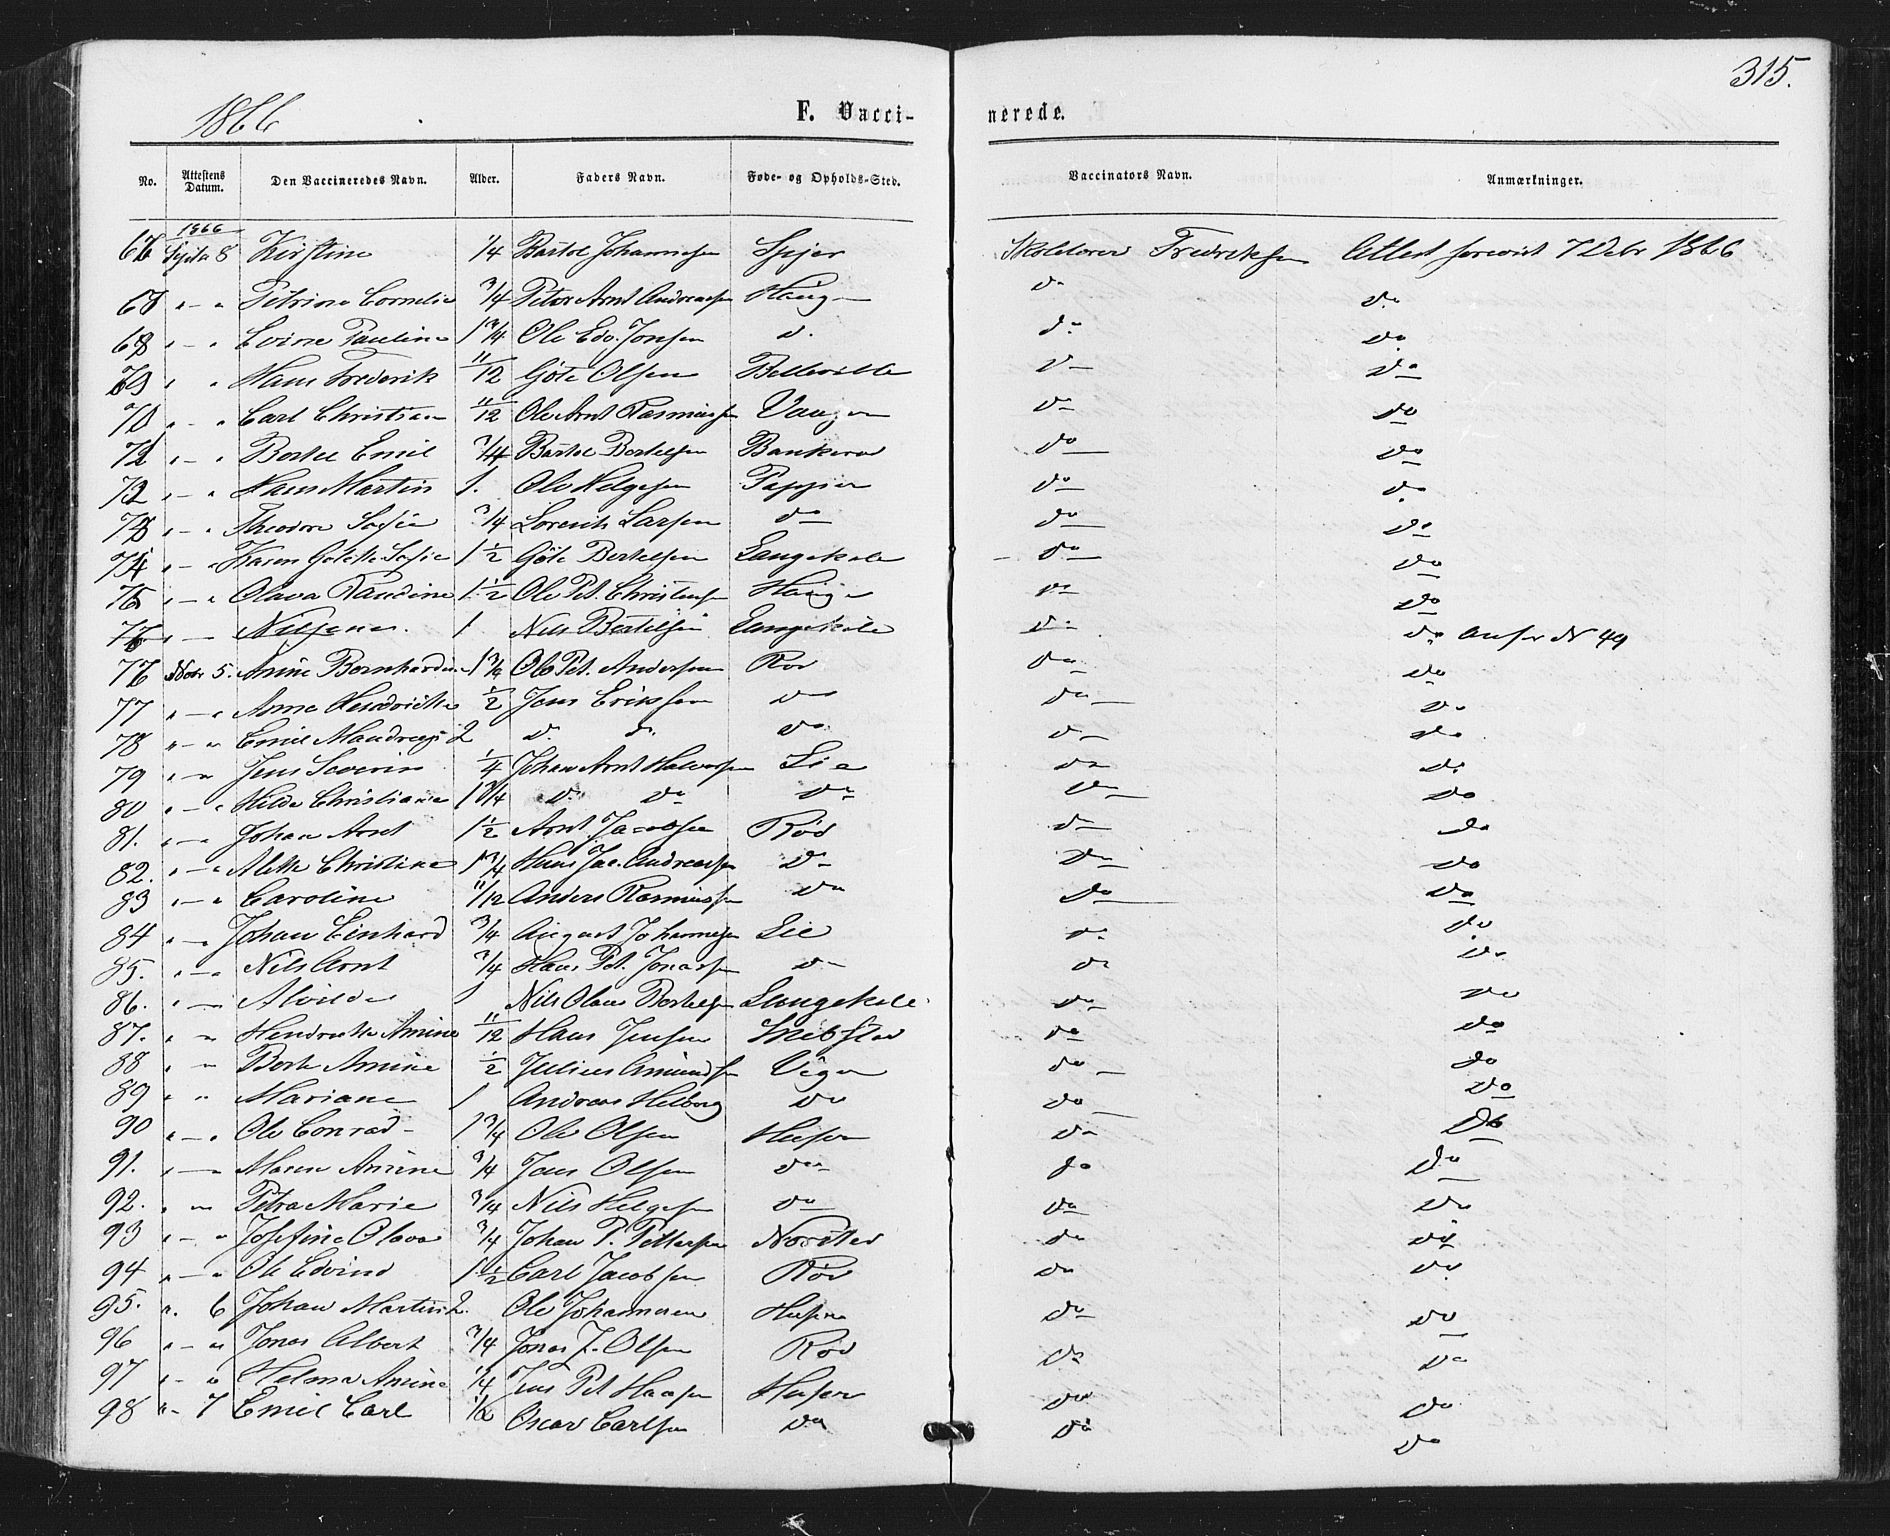 315.
1866 F. Vacci- nerede.
No. Attestens Datum. Den Vaccineredes Navn. Alder. Faders Navn. Føde- og Opholds-Sted. Vaccinators Navn. Anmærkninger.
1866
8 Kirstine 1/4 Bartol Johannesen Skolelærer Fredriksen Attest 7 Debr 1866
" — " Petrine Cornelia 3/4 Peter Arnt Andreassen Haugen do do
68 " — " Paulin 1 3/4 Ole Edv. Jonsen d. do do
" " Hans Frederik 11/12 Göte Olsen Belleville do do
" — " Carl Christian 11/12 Ole Arnt Rasmussen Vaagen do do
" — " Bertel Emil 3/4 Bartol Bertelsen do do
" — " Hans Martin 1. Ole Helgesen do do
" — " Theodore Sofie 3/4 Larsen do do do
74 " — " Karen Sofie 1 1/2 Göte Bertelsen Langekile do do
75 " — " Olava Paudine 1 1/2 Ole Pet. Christensen Hauge do do
76 " — Nilsena. 1 Nils Bertelsen Langekile do do No 49
Novr 5. Anine Bernhardine 1 3/4 Ole Pet. Andersen Rød do do
77 " — " Anne Hendrikke 1/2 Jens Eriksen do do do
78 " — " Emil 2 d. d. do do do
79 " — " Jens Severin 1/4 Johan Arnt Halvorsen Lie do do
80 " — " Hilda Christiane 1 3/4 d. do do do do
81. " — " Johan Arnt 1 1/2 Arnt Jacobsen Rød do do
82. " — " Alette Christine 1 3/4 Hans Jac. Andreassen do do do
83 " — " Caroline 11/12 Anders Rasmussen do do do
84 " — " Johan Einhard 3/4 August Johannesen Lie do do
85. " — " Nils Arnt 3/4 Hans Pet. Jonassen do do do
86. " — Alvilde 1 Nils Olaus Bertelsen Langekile do do
87. " " Hendrikke Amine 11/12 Hans Jensen Skibstad do do
88 " " Berte Amine 1/2 Julius Amundsen Vigen do do
89 " " Mariane 1 Andreas Helberg do do do
90 " — " Ole Conrad 1 3/4 Ole Olsen Huser do do
91. " — Maren Amine 3/4 Jens Olsen do do do
92. " — Petra Marie 3/4 Nils Helgesen do do do
93 " — " Josefine Olava 3/4 Johan P. Pettersen do do
94 " — " Ole Edvind 1 1/2 Carl Jacobsen Rød do do
95. ". 6 Johan Martin 2. Ole Johannesen Huser do do
96 " — " Jonas Albert 3/4 Jonas J. Olsen Rød do do
97 " — " Helma Amine 1/4 Jens Pet Hansen Huser do do
98 " — 7 Emil Carl 1/2 Oscar Carlsen do do do